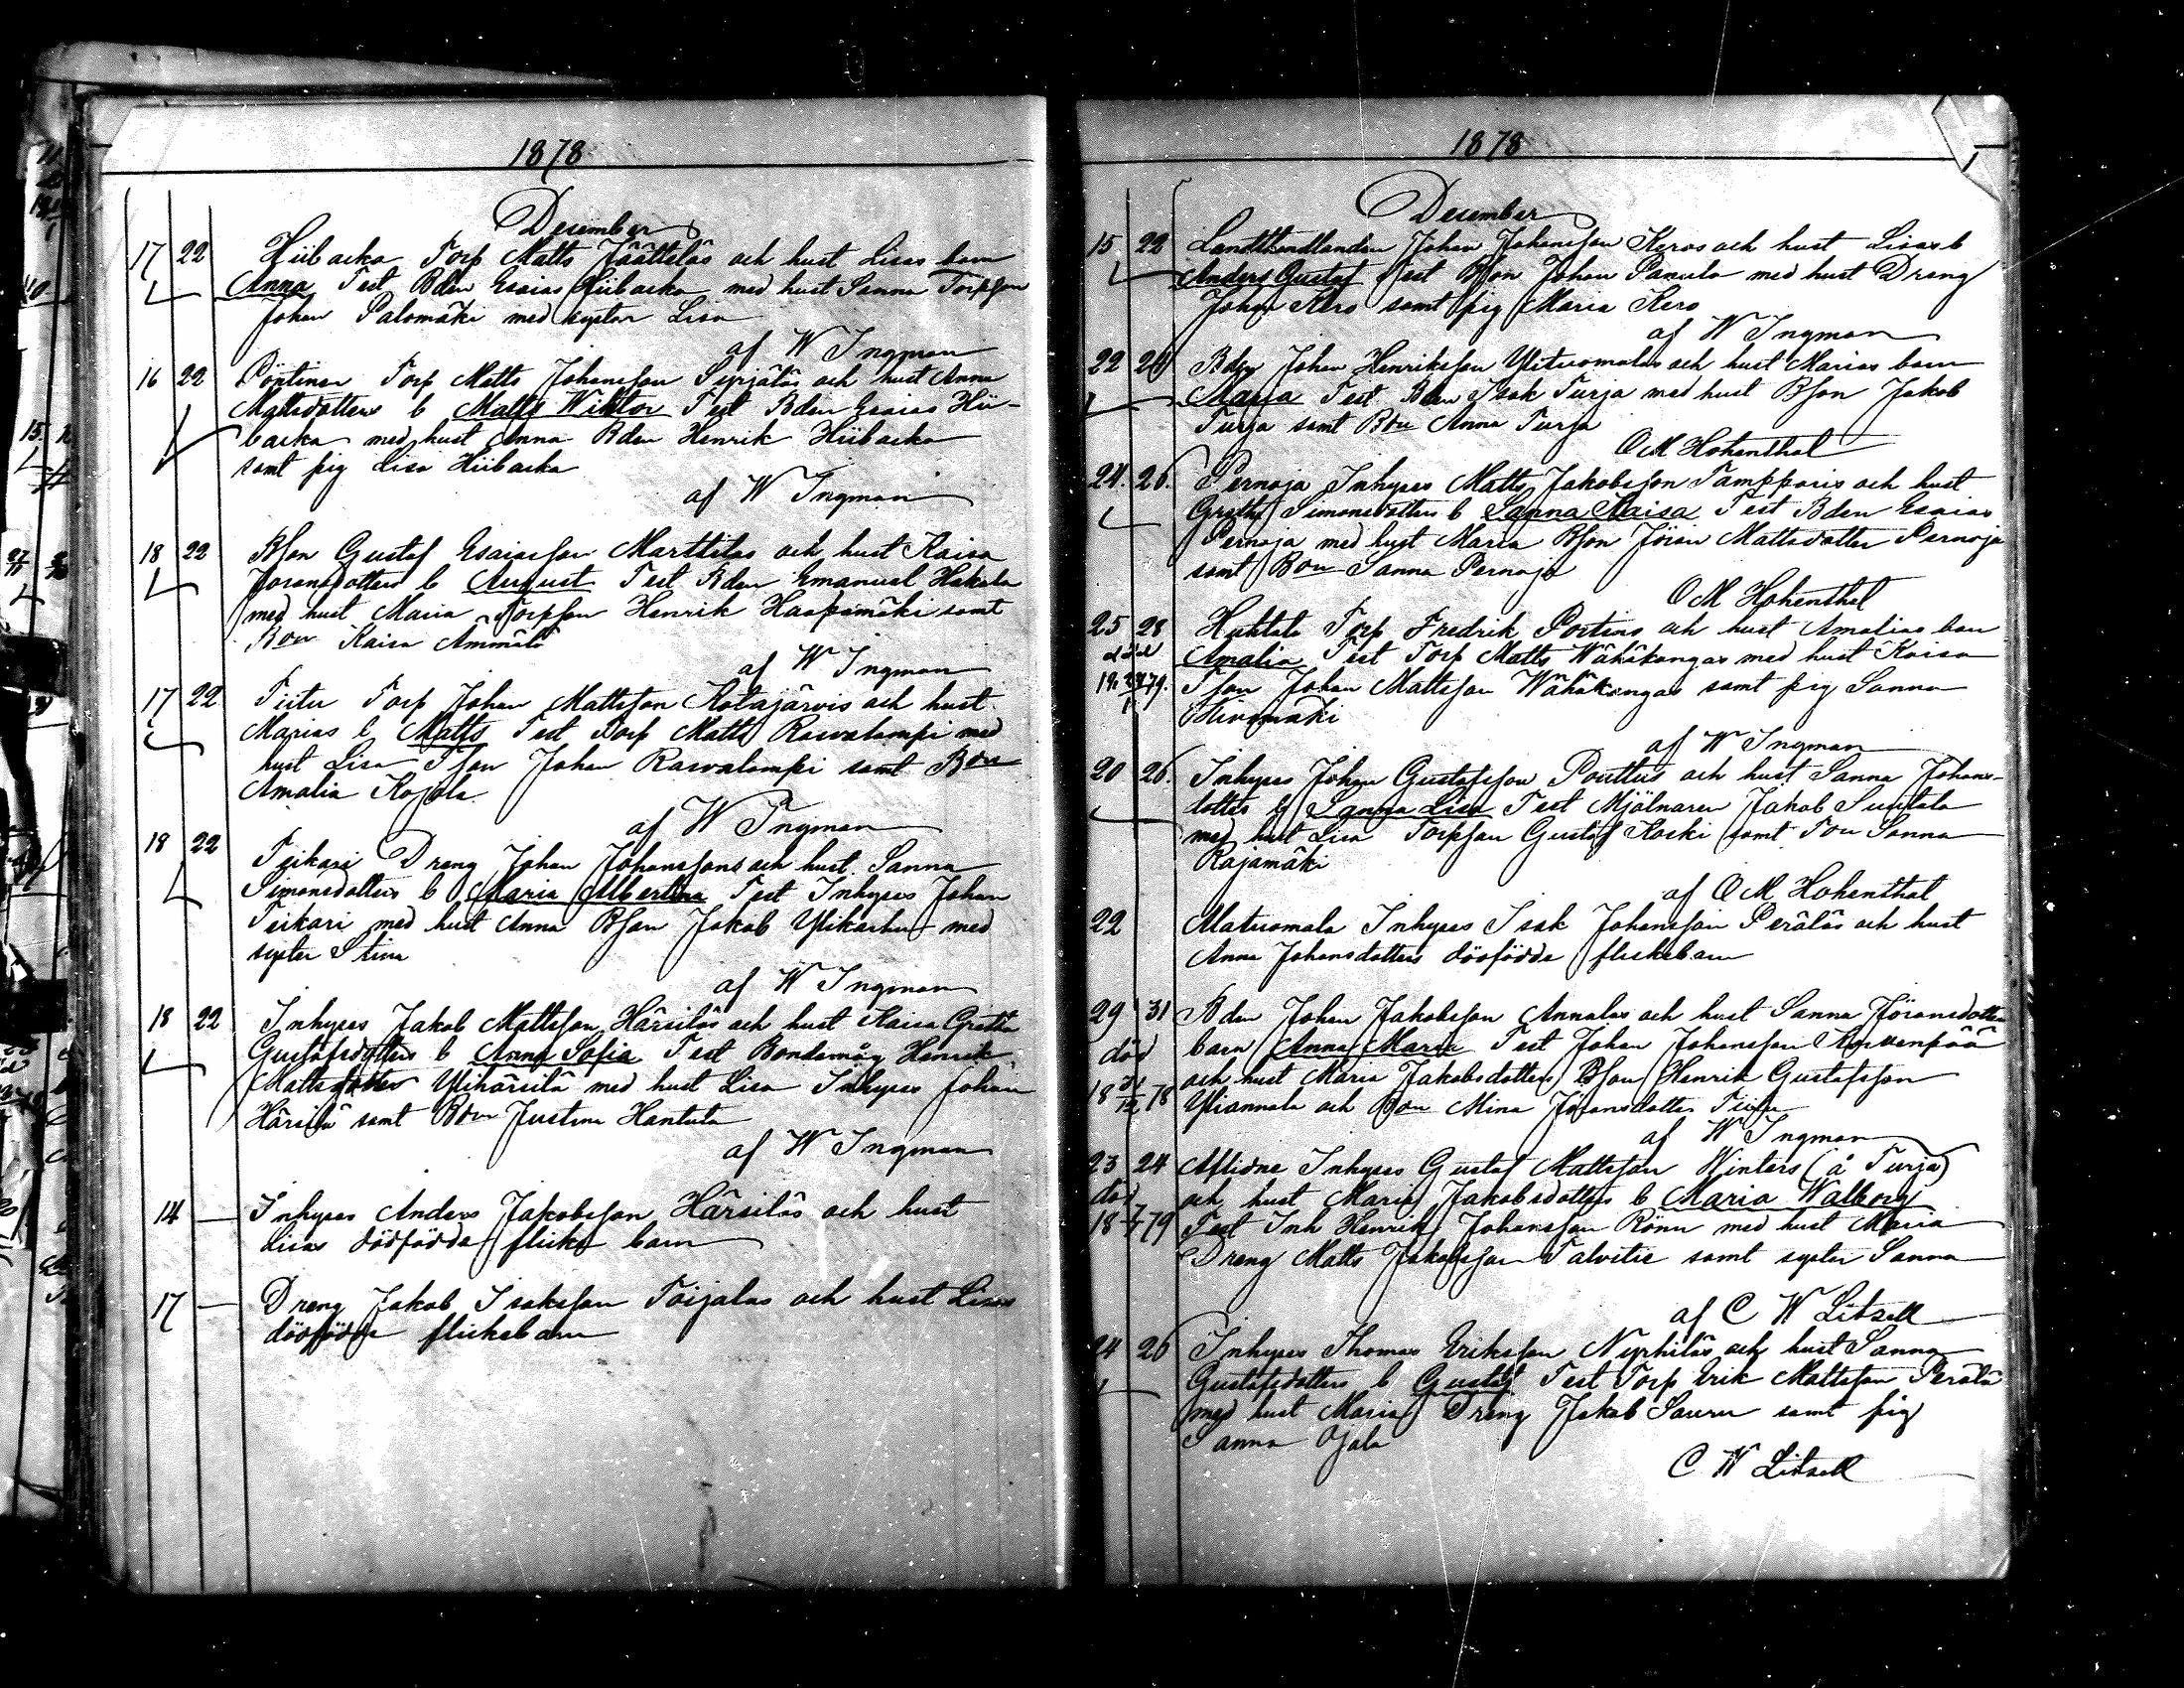 1878
December
17 22 Hiibacka Torp Matts Jäättelös och hust Lisas barn
Anna Test Bden Esaias Hiibacka med hust Sanna Torpson
Johan Palomäki med syster Lisa
af W Ingman
16 22 Pöntinen Torp Matts Johansson Syrjäläs och hust Anna
Mattsdotters b Matts Wiktor Test Bden Esaias Hii-
backa med hust Anna Bden Henrik Hiibacka
samt pig Lisa Hiibacka
af W Ingman
18 22 Bson Gustaf Esaiasson Marttilas och hust Kaisa
Joransdotters b August Test Bden Emanuel Hakala
med hust Maria Torpson Henrik Haapamäki samt
Bdtr Kaisa Ämmälä
af W Ingman
17 22 Tiitu Torp Johan Mattsson Kotajärvis och hust
Marias b Matts Test Torp Matts Rawalampi med
hust Lisa Tson Johan Rawalampi samt Bdtr
Amalia Kojola
af W Ingman
18 22 Teikari Dreng Johan Johanssons och hust Sanna
Simonsdotters b Maria Albertina Test Inhyses Johan
Teikari med hust Anna Bson Jakob Ylikarhu med
syster Stina
af W Ingman
18 22 Inhyses Jakob Mattsson Härsiläs och hust Kaisa Greta
Gustafsdotters b Anna Sofia Test Bondemåg Henrik
Mattsson Ylihärsilä med hust Lisa Inhyses Johan
Härsilä samt Bdtr Justina Hantula
af W Ingman
14 — Inhyses Anders Jakobsson Härsiläs och hust
Lisas dödfödda flicke barn
17 — Dreng Jakob Isaksson Toijalas och hust Lisas
dödfödda flickebarn
1878
December
15 22 Johan Johansson Keros och hust Lisas b
Anders Gustaf Test Bson Johan Panula med hust Dreng
Johan Kero samt pig Maria Kero
af W Ingman
22 26 Bdmg Johan Henriksson Ylituomalas och hust Marias barn
Maria Test Bden Isak Turja med hust Bson Jakob
Turja samt Bdtr Anna Turja
O M Hohenthal
24. 26. Pernaja Inhyses Matts Jakobsson Tampparis och hust
Greta Simonsdotters b Sanna Kaisa Test Bden Esaias
Pernaja med hust Maria Bson Jöran Mattsdotter Pernaja
samt Bdtr Sanna Pernaja
O M Hohenthal
25 28 Huhtala Torp Fredrik Portins och hust Amalias barn
död Amalia Test Torp Matts Wähäkangas med hust Kaisa
18 79. Tson Johan Mattsson Wähäkangas samt pig Sanna
af W Ingman
20 26. Inhyses Johan Gustafsson Pouttus och hust Sanna Johans-
dotters b Sanna Lisa Test Mjölnaren Jakob Suutala
med hust Lisa Torpson Gustaf Koski samt Tdtr Sanna
Rajamäki
af O M Hohenthal
22 Alatuomala Inhyses Isak Johansson Peräläs och hust
Anna Johansdotters dödfödda flickebarn
29 31 Bden Johan Jakobsson Annalas och hust Sanna Jöransdotters
död barn Anna Maria Test Johan Johansson Korvenpää
och hust Maria Jakobsdotters Bson Henrik Gustafsson
18 31/12 78 Yliannala och Bdtr Mina Jöransdotter Tiitu
af W Ingman
23 24 Aflidne Inhyses Gustaf Mattsson Winters (å Turja)
död och hust Maria Jakobsdotters b Maria Walborg
18 7/1 79 Test Inh Henrik Johansson Rönn med hust Maria
Dreng Matts Jakobsson Talvitie samt syster Sanna
af C W Litzell
24 26 Inhyses Thomas Eriksson Nyrhiläs och hust Sanna
Gustafsdotters b Gustaf Test Torp Erik Mattsson Perälä
med hust Maria Dreng Jakob Sauru samt pig
Sanna Ojala
C W Litzell